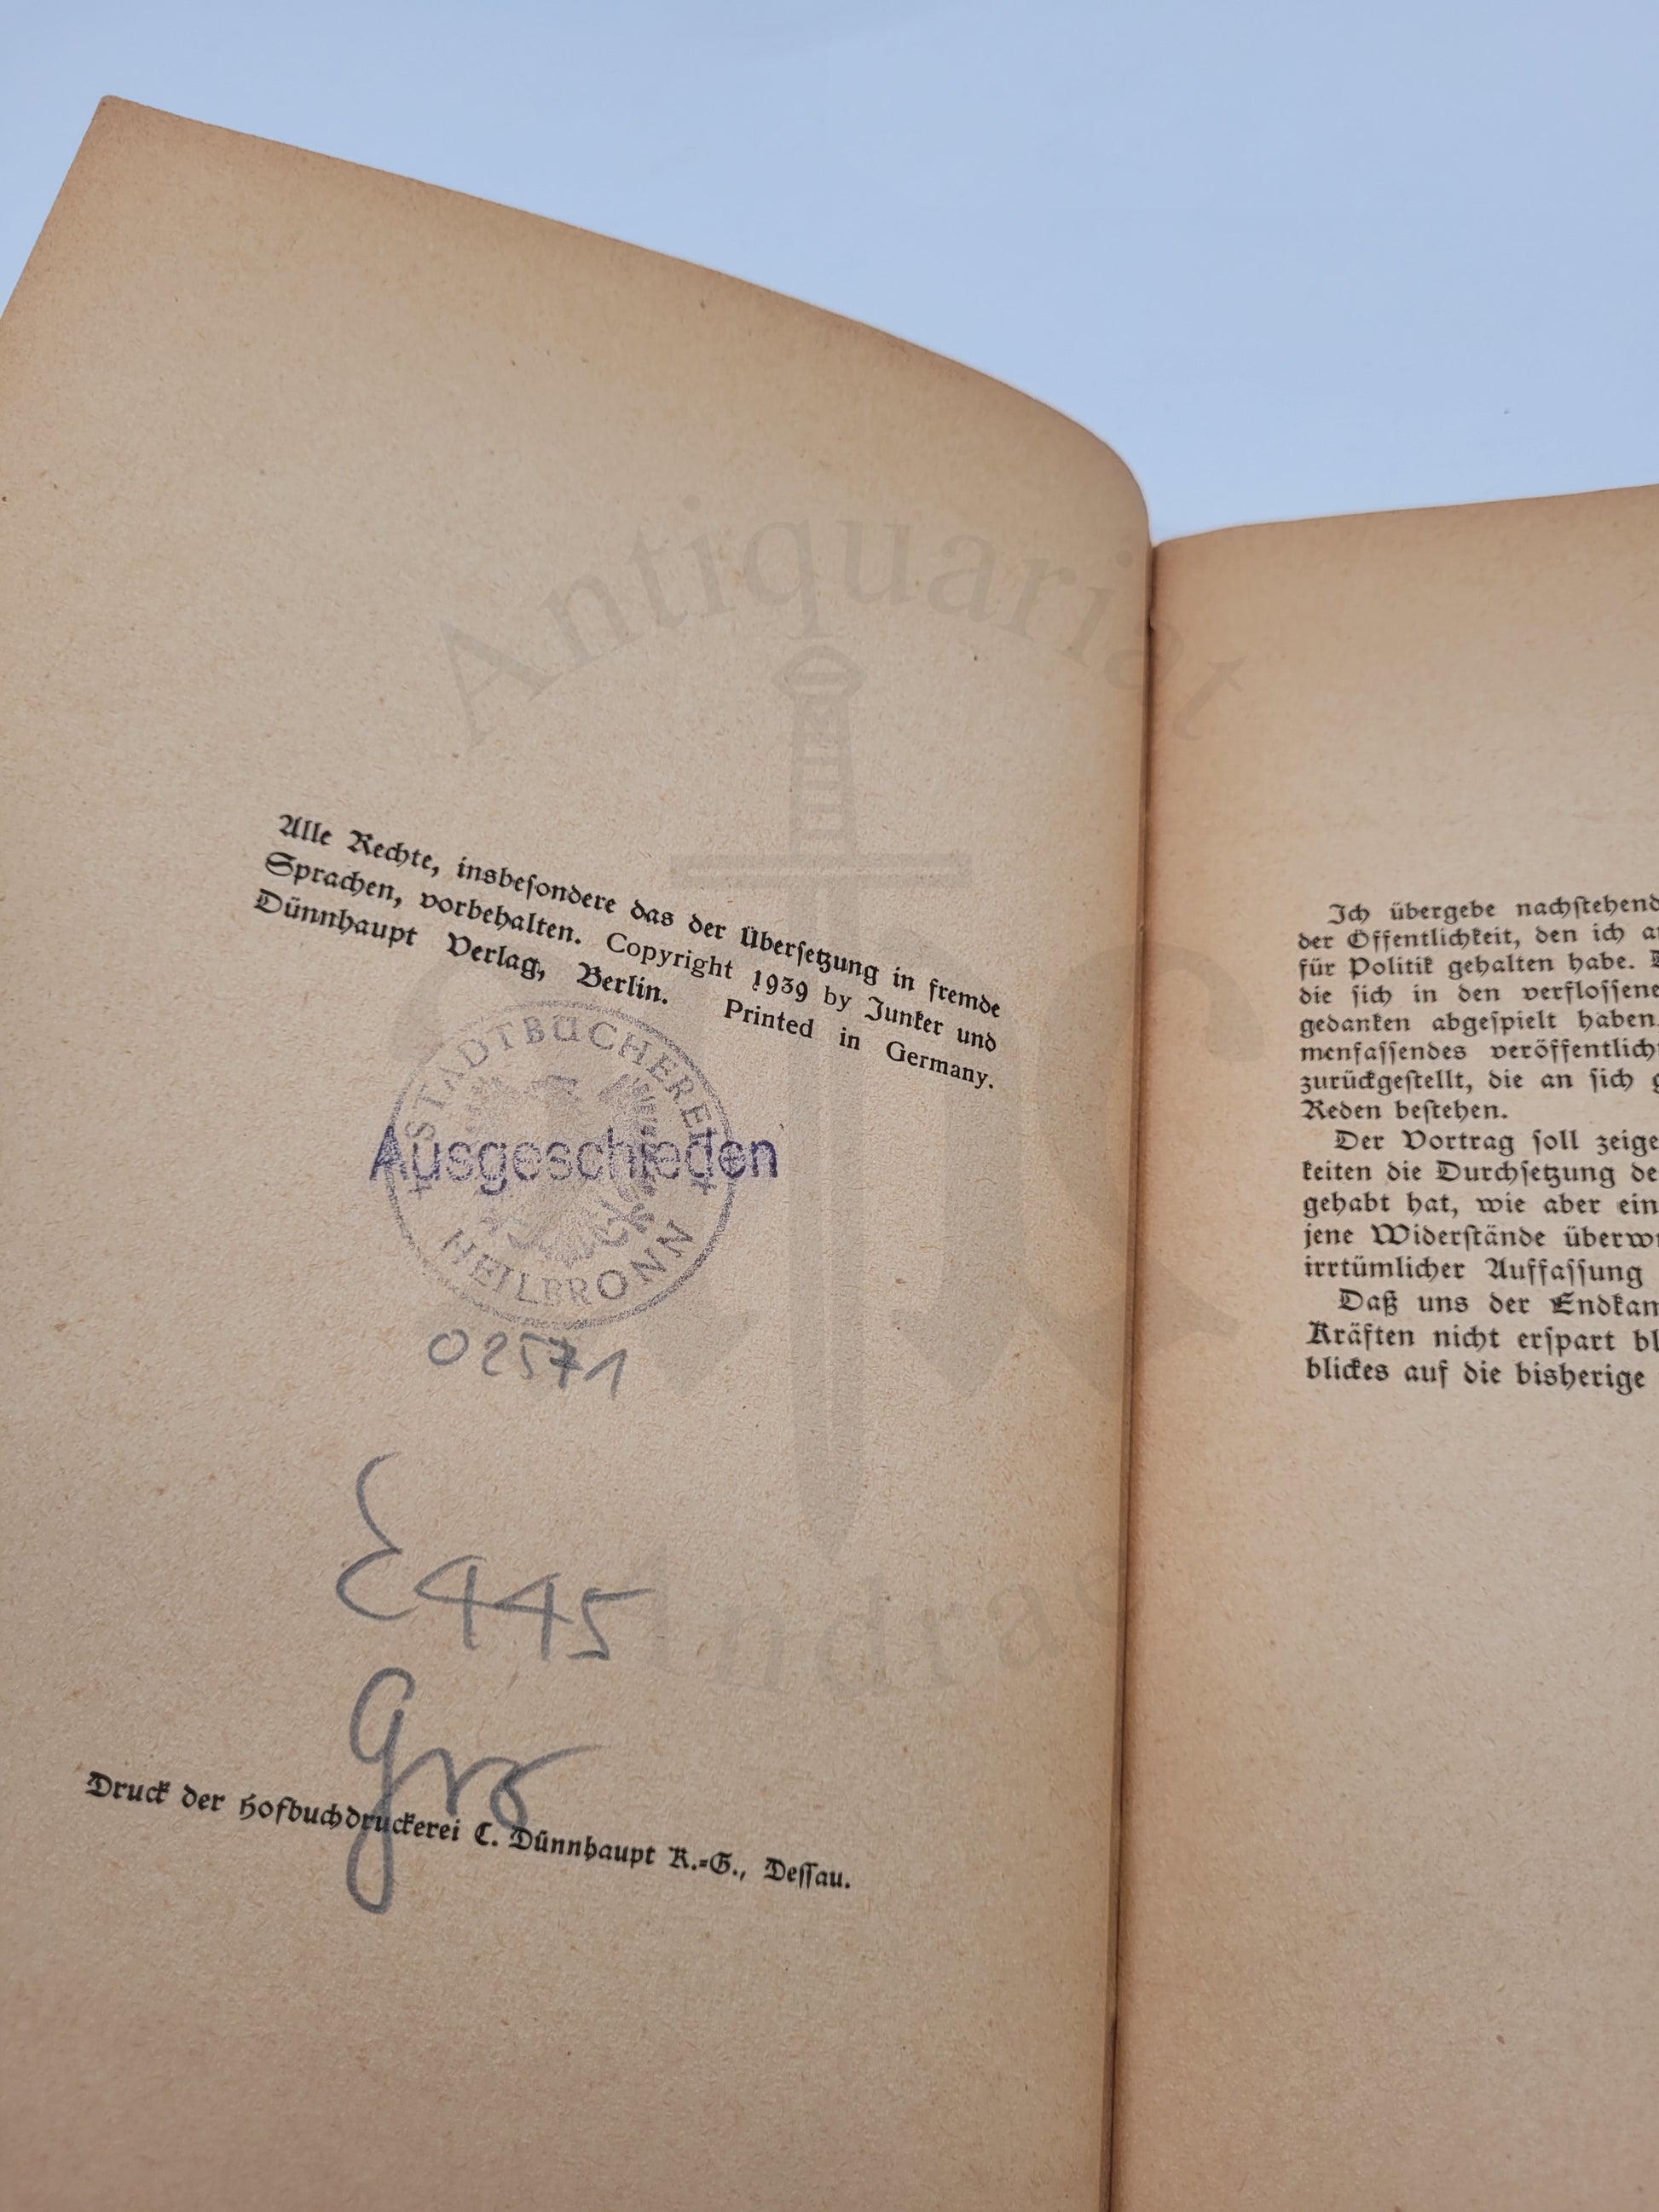 Antiquariat
Alle Rechte, insbesondere das der Übersetzung in fremde
Sprachen, vorbehalten. Copyright 1939 by Junker und
Dünnhaupt Verlag, Berlin. Printed in Germany.
STADTBÜCHEREI
Ausgeschieden
HEILBRONN
02571
E445
Gro
Druck der Hofbuchdruckerei C. Dünnhaupt K.-G., Dessau.
Andras
Ich übergebe nachstehend
der Öffentlichkeit, den ich
für Politik gehalten habe.
die sich in den
gedanken abgespielt haben.
zurückgestellt, die an sich
Reden bestehen.
Der Vortrag soll
keiten die Durchsetzung
gehabt hat, wie aber
jene Widerstände
irrtümlicher Auffassung
Daß uns der
Kräften nicht erspart
blickes auf die bisherige